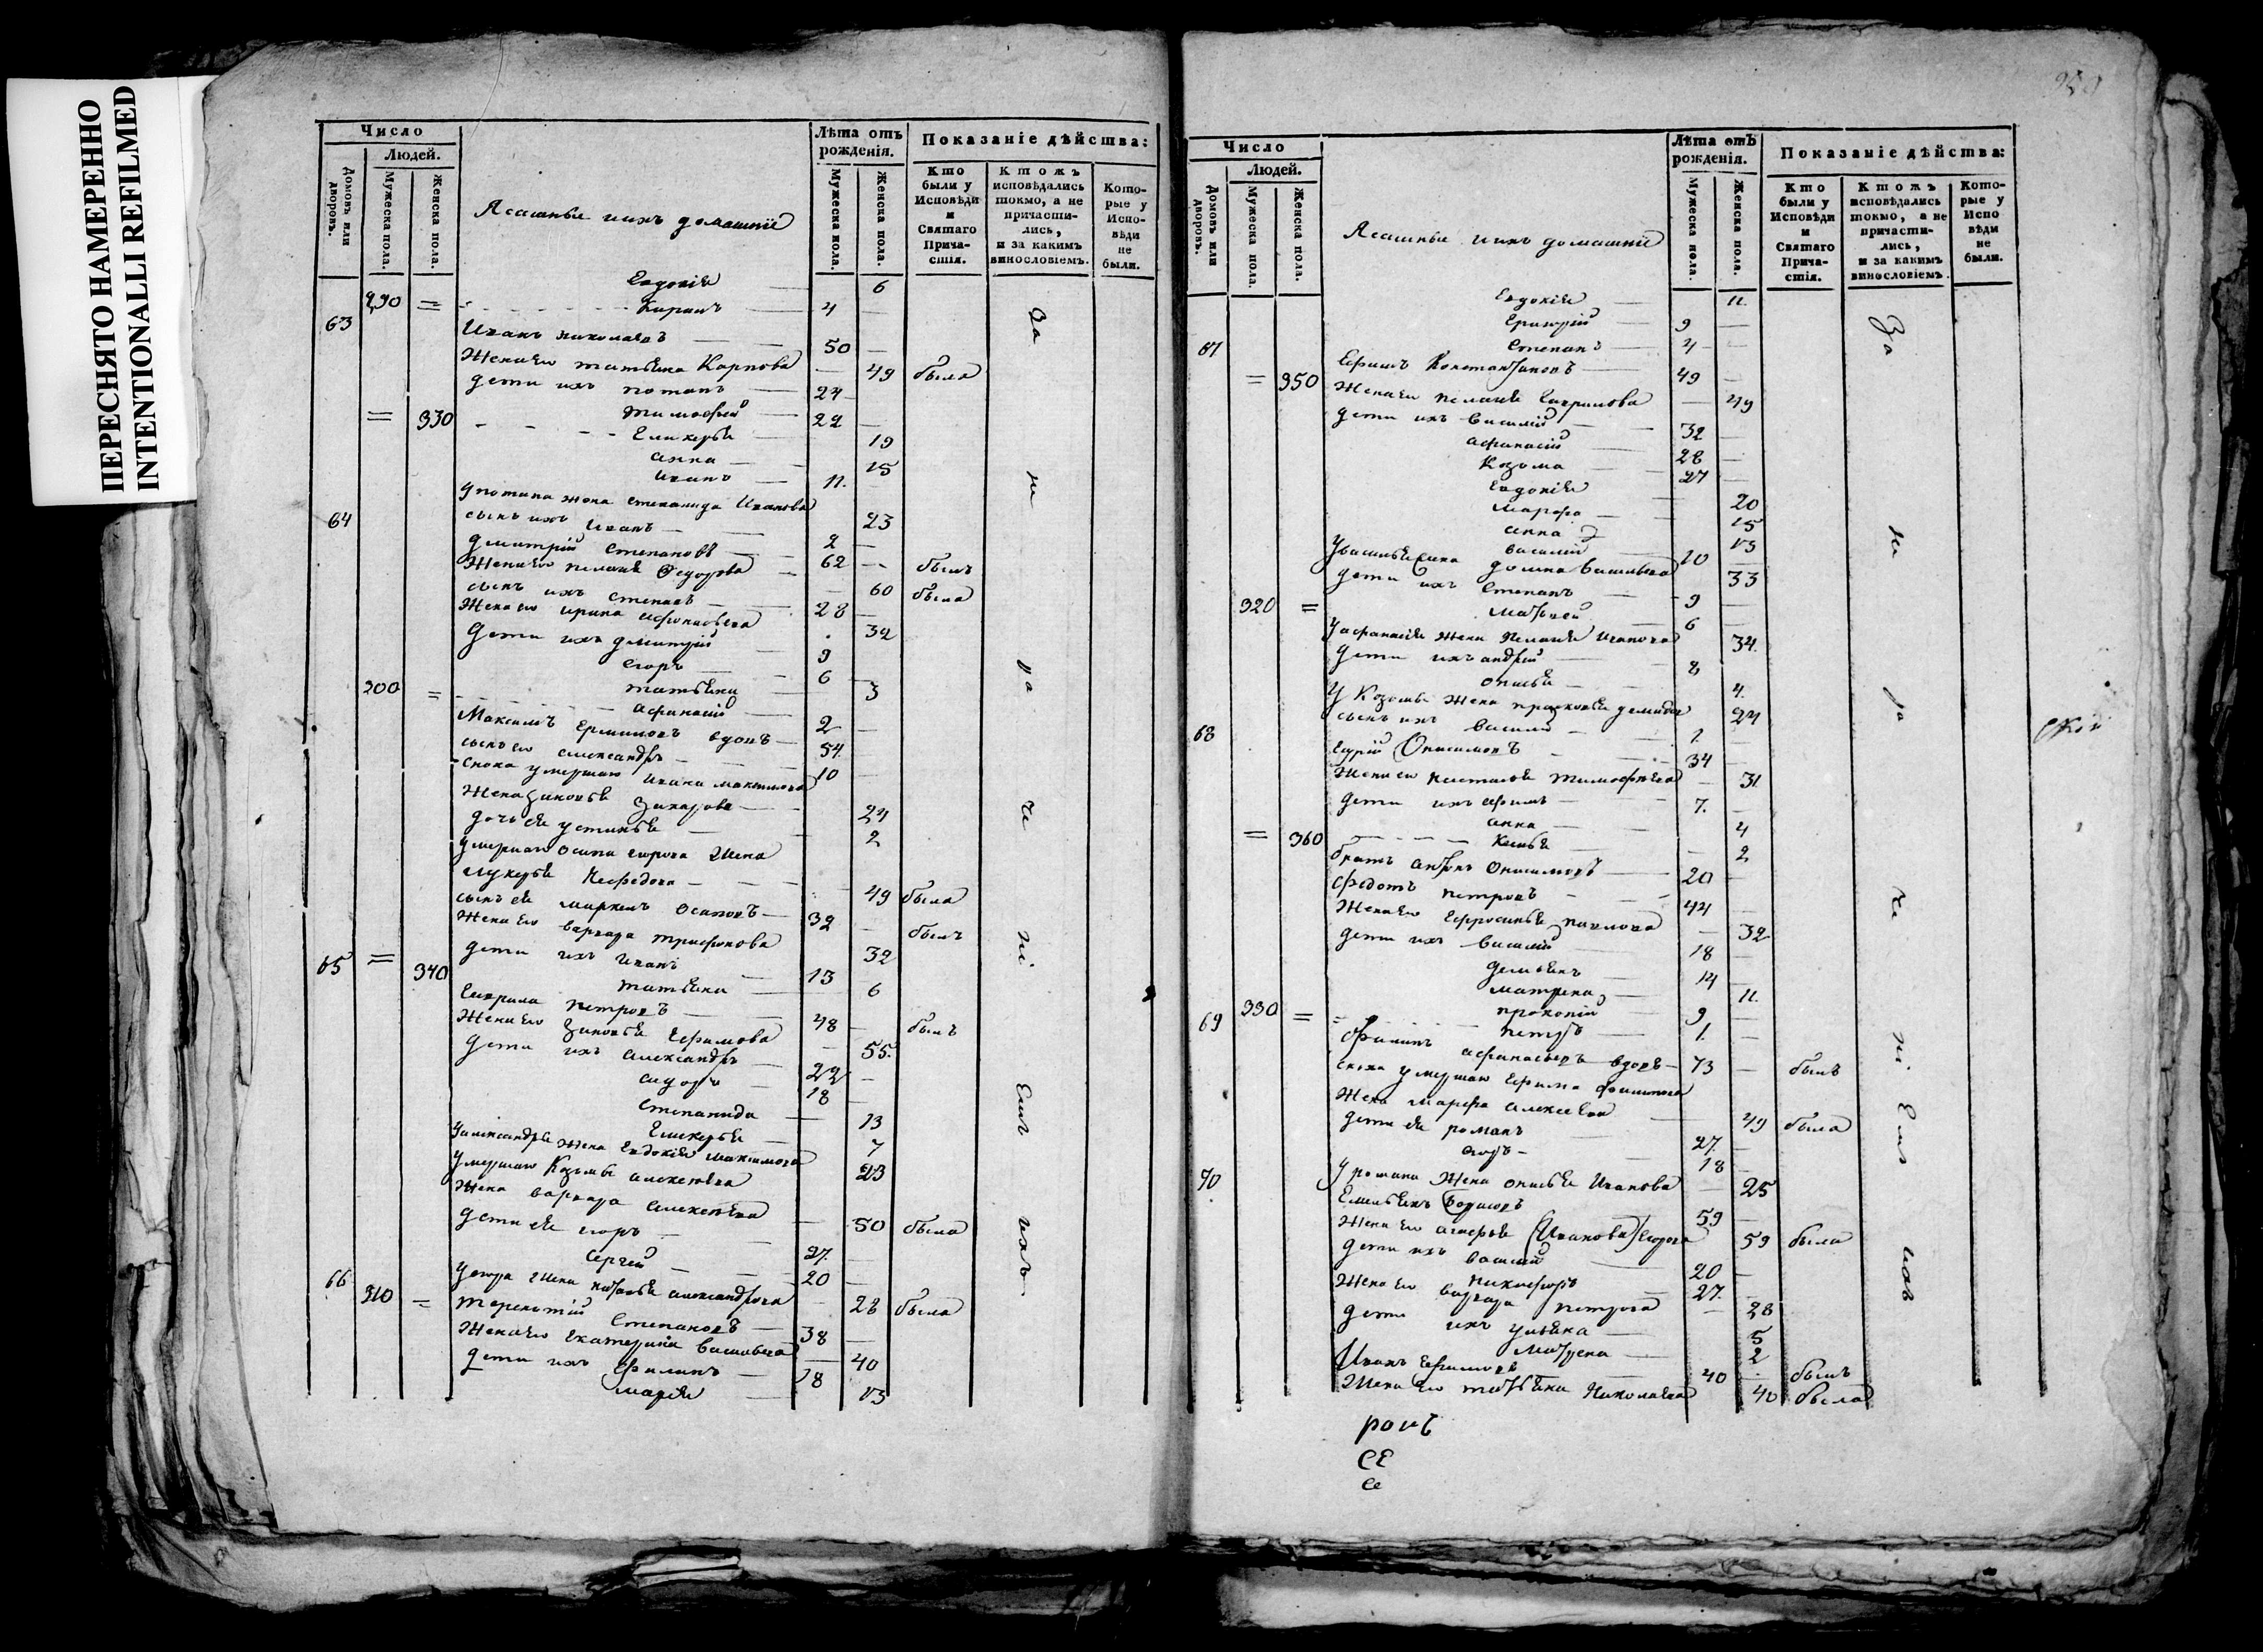 ПЕРЕСНЯТО НАМЕРЕННО
INTENTIONALLI REFILMED
Число
Людей.
Домовъ или дворовъ.
Мужеска пола.
Женска пола.
Ясашные и ихъ домашніе
Лѣта отъ рожденія.
Мужеска пола.
Женска пола.
Показаніе дѣйства:
Кто были у Исповѣди и Святаго Причастія.
Ктожъ исповѣдались токмо, а не причастились, и за какимъ винословіемъ.
Которые у Исповѣди не были.
Евдокія 6
290 = Кирилъ 4
63 Иванъ Николаевъ 50
Жена его Татьяна Карпова 49 была
Дети ихъ Потапъ 24
= 330 Тимофей 22
Гликерья 19
Анна 15
Иванъ 11.
У Потапа жена Степанида Иванова 23
Сынъ ихъ Иванъ 2
64 Дмитрій Степановъ 62 былъ
Жена его Пелагея Федорова 60 была
Сынъ ихъ Степанъ 28
Жена его Ирина Афонасьева 32
Дети ихъ Дмитрій 9
Егоръ 6
Татьяна 3
300 = Афанасій 2
Максимъ Ермиловъ вдовъ 54
Сынъ его Александръ 10
Сноха умершаго Ивана Максимова
Жена Зиновья Захарова 24
Дочь ея Устинья 2
Умершаго Осипа Егорова жена
Лукерья Нефедова 49 была
Сынъ ея Маркелъ Осиповъ 32 былъ
Жена его Варвара Трифонова 32
Дети ихъ Иванъ 13
= 340 Татьяна 6
65 Гаврила Петровъ 48 былъ
Жена его Зиновья Ефимова 55.
Дети ихъ Александръ 22
Сидоръ 18
Степанида 13
Гликерья 7
У Александра жена Евдокія Максимова 23
Умершаго Козьмы Алексеева
Жена Варвара Алексеева 50 была
Дети ея Егоръ 27.
Сергей 20
У Егора жена Наталья Александрова 28 была
66 310 = Терентій Степановъ 38
Жена его Екатерина Васильева 40
Дети ихъ Филипъ 18
Марія 13
За не ра че ні Емъ ихъ
Число
Людей.
Домовъ или дворовъ.
Мужеска пола.
Женска пола.
Ясашные и ихъ домашніе
Лѣта отъ рожденія.
Мужеска пола.
Женска пола.
Показаніе дѣйства:
Кто были у Исповѣди и Святаго Причастія.
Ктожъ исповѣдались токмо, а не причастились, и за какимъ винословіемъ.
Которые у Исповѣди не были.
Евдокія 11.
Григорій 9
Степанъ 4
67 Ефимъ Константиновъ 49
= 350 Жена его Пелагея Гаврилова 49
Дети ихъ Василій 32
Афанасій 28
Козьма 27
Евдокія 20
Марфа 15
Анна 13
Василій 10
У Василья жена Домна Васильева 33
Дети ихъ Степанъ 9
320 = Матвей 6
У Афанасія жена Пелагея Иванова 34.
Дети ихъ Андрей 8
Описья 4.
У Козьмы жена Прасковья Демидова 24
Сынъ ихъ Василій 1
68 Онисимовъ 34
Жена его Настасья Тимофеева 31
Дети ихъ Ефимъ 7.
Анна 4
= 360 2
Братъ Антонъ Онисимовъ 20
Федотъ Петровъ 44
Жена его Ефросинья Павлова 32
Дети ихъ Василій 18
Демьянъ 14
Матрена 11.
330 = Прокопій 9
Петръ 1.
69 Филипъ Афанасьевъ вдовъ 73 былъ
Сноха умершаго Ефима Филипова
Жена Марфа Алексеева 49 была
Дети ея Романъ 27.
Егоръ 18
У Романа жена Описья Иванова 25
70 Емельянъ Борисовъ 59
Жена его Агафья (Иванова) Егорова 59 была
Дети ихъ Василій 20
Никифоръ 27.
Жена его Варвара Петрова 28
Дети ихъ Ульяна 5
Матрена 2
Иванъ Ефимовъ 40 былъ
Жена его Татьяна Николаева 40 была
За не ра че ні Ем ихъ
ской
ровъ
СЕ
Се